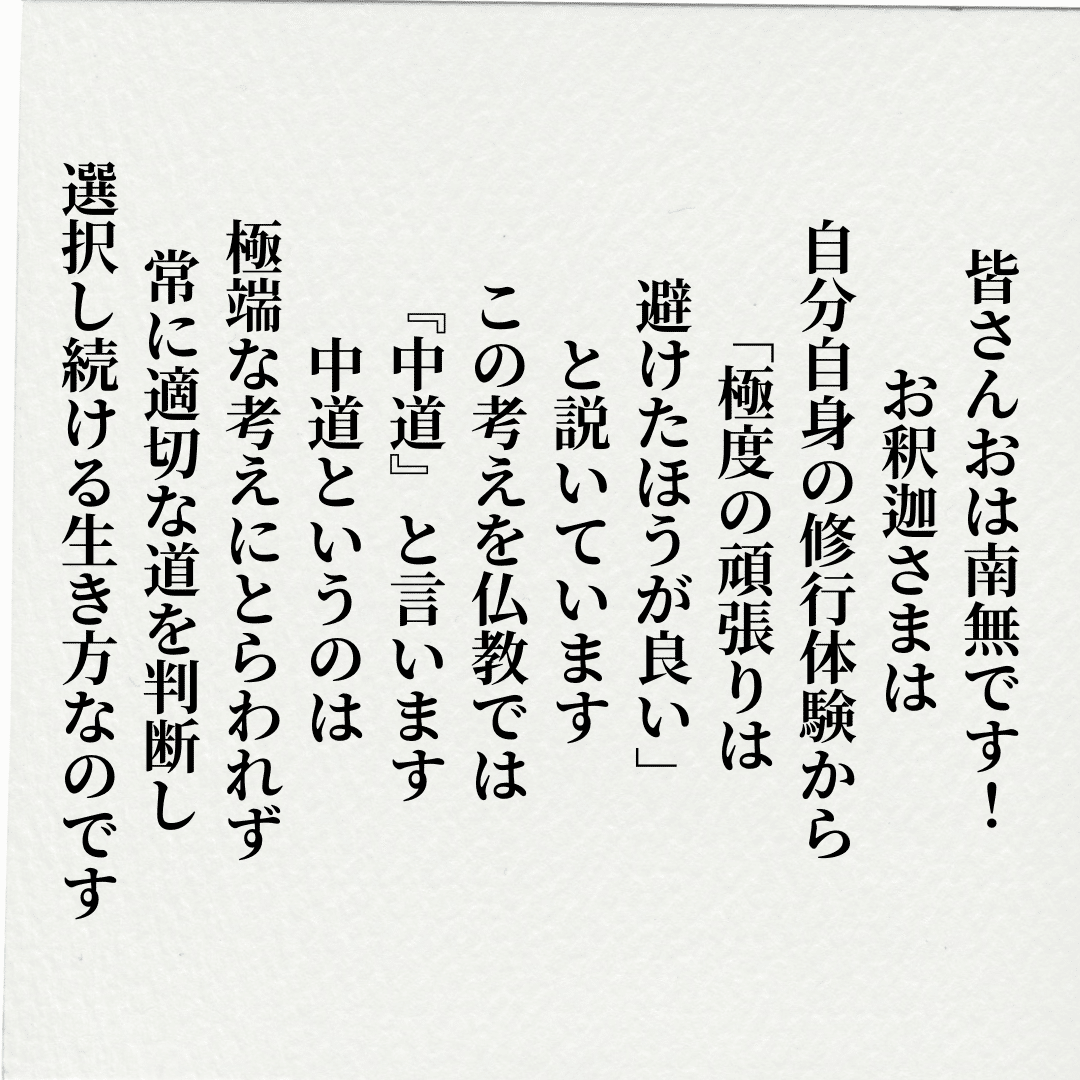 皆さんおは南無です！
お釈迦さまは
自分自身の修行体験から
「極度の頑張りは
避けたほうが良い」
と説いています
この考えを仏教では
『中道』と言います
中道というのは
極端な考えにとらわれず
常に適切な道を判断し
選択し続ける生き方なのです